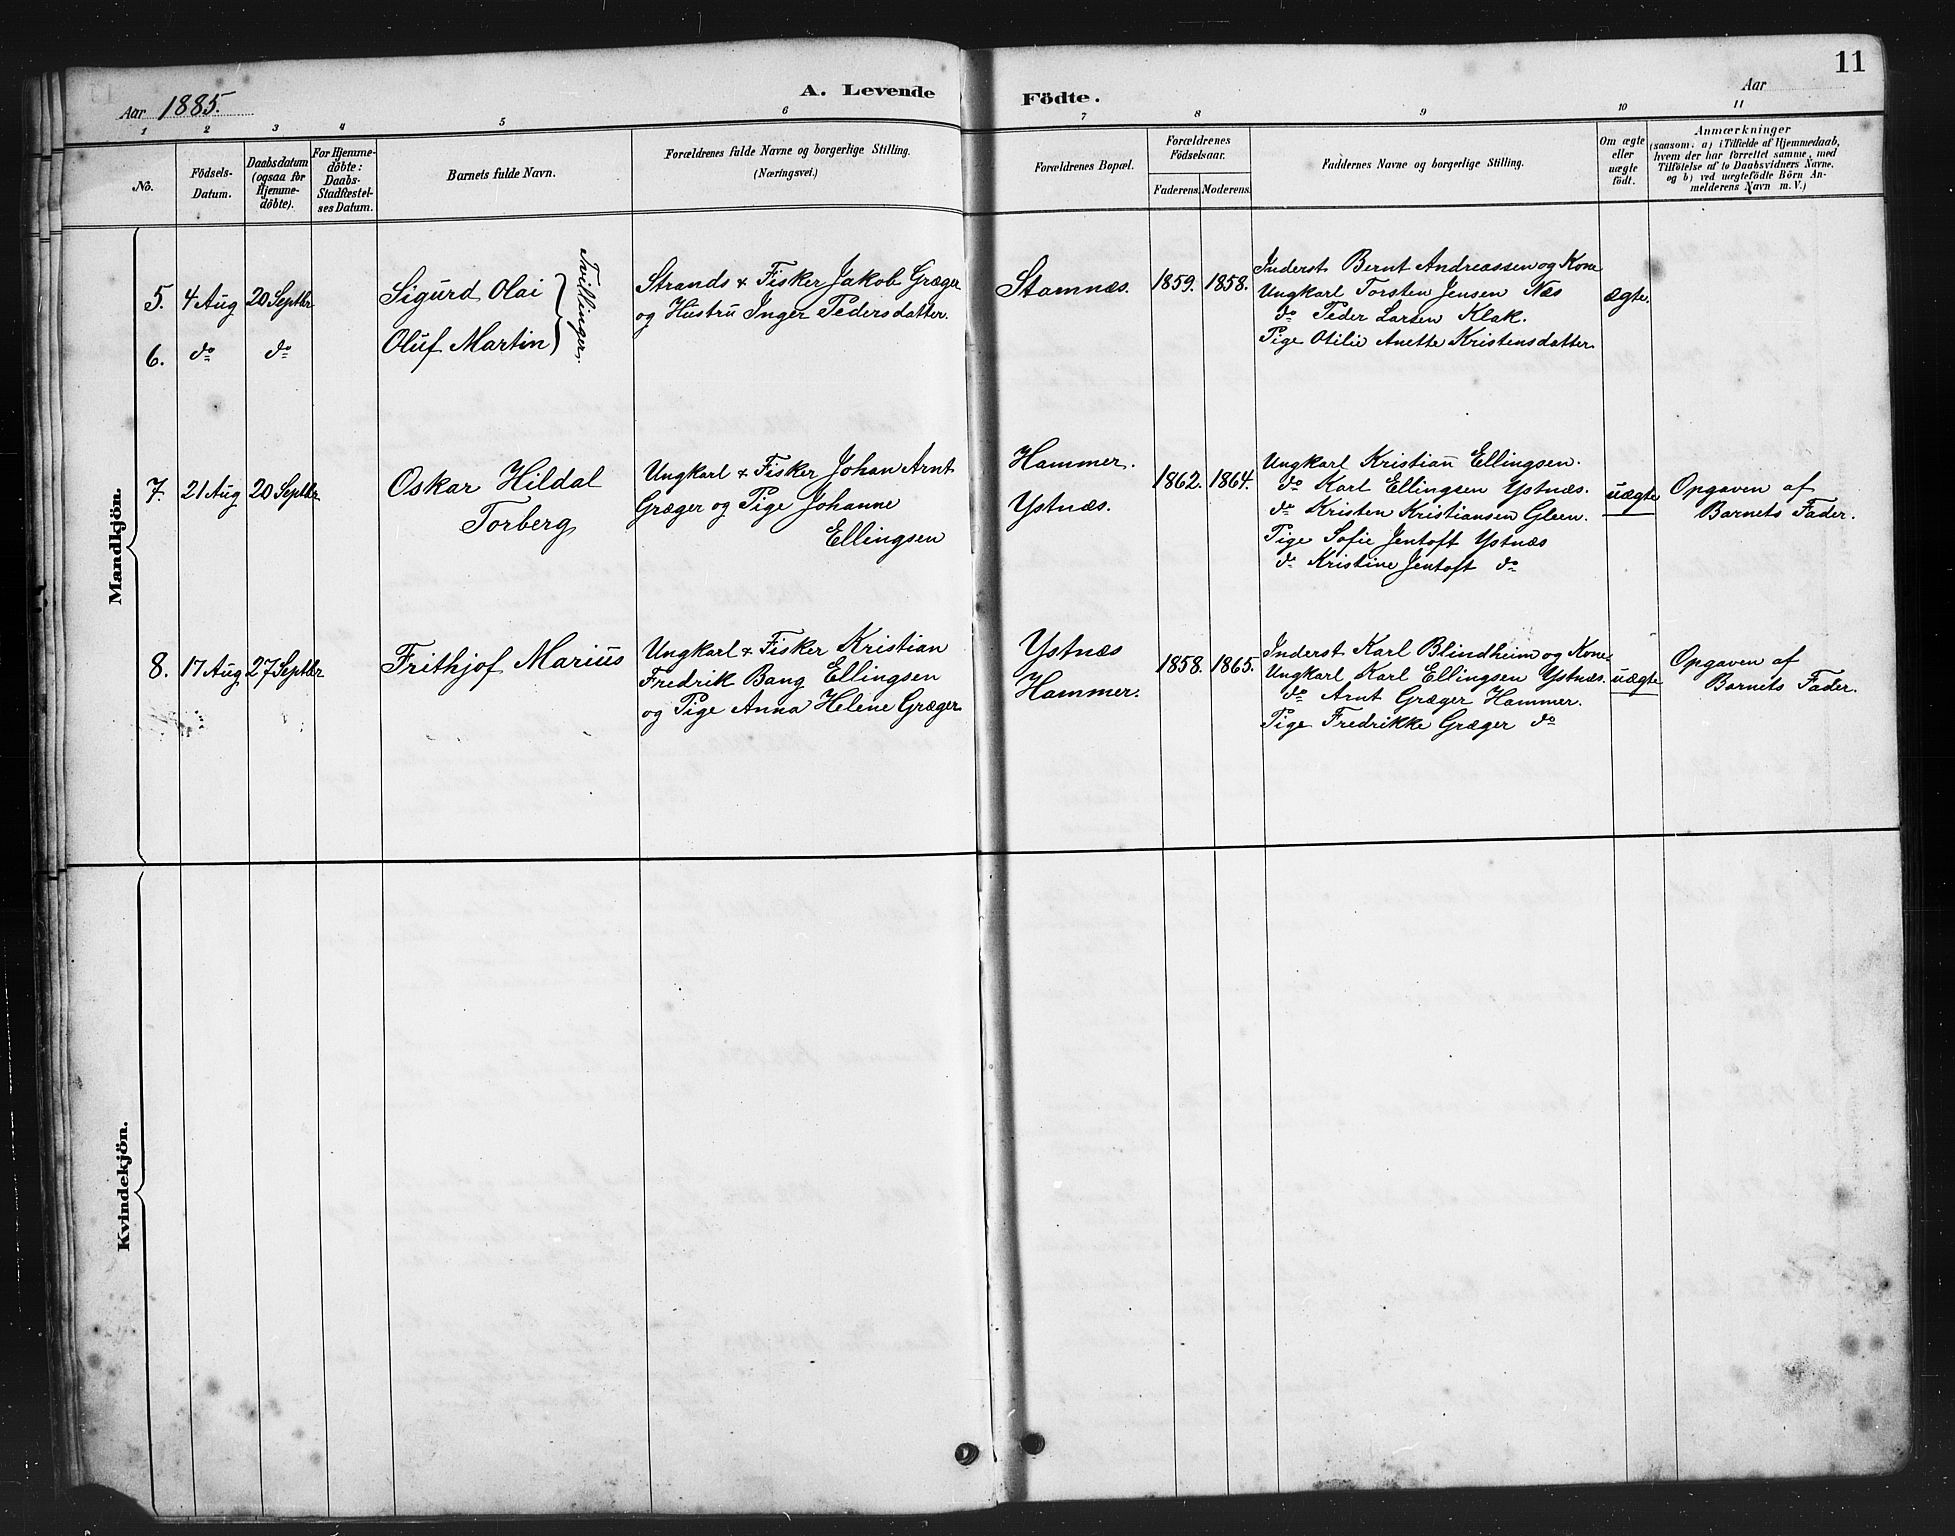 11
Aar 1885.
A. Levende
Födte.
Aar
1
2
3
4
5
6
7
8
9
10
11
No.
Födsels-
Datum.
Daabsdatum
(ogsaa for
Hjemme-
döbte).
For Hjemme-
döbte:
Daabs-
Stadfæstel-
ses Datum.
Barnets fulde Navn.
Forældrenes fulde Navne og borgerlige Stilling.
(Næringsvei.)
Forældrenes Bopæl.
Forældrenes
Födselsaar.
Faderens.
Moderens.
Faddernes Navne og borgerlige Stilling.
Om ægte
eller
uægte
födt.
Anmærkninger
(saasom: a) i Tilfælde af Hjemmedaab,
hvem der har forrettet samme, med
Tilföielse af to Daabsvidners Navne.
og b) ved uægtefödte Börn An-
melderens Navn m. V.)
Mandkjön.
5.
4 Aug
20 Septbr
Sigurd Olai
Tvillinger.
Strands & Fisker Jakob Græger
og Hustru Inger Pedersdatter.
Stamnæs.
1859.
1858.
Inderst Bernt Andreassen og Kone
Ungkarl Torsten Jensen Næs
do Peder Larsen Klak.
Pige Otilie Anette Kristensdatter.
ægte.
6.
do
do
Oluf Martin
7.
21 Aug
20 Septbr
Oskar Hildal
Torberg
Ungkarl & Fisker Johan Arnt
Græger og Pige Johanne
Ellingsen
Hammer.
Ystnæs.
1862.
1864.
Ungkarl Kristian Ellingsen.
do Karl Ellingsen Ystnæs.
do Kristen Kristiansen Gleen.
Pige Sofie Jentoft Ystnæs
do Kristine Jentoft do
uægte
Opgaven af
Barnets Fader.
8.
17 Aug
27 Septbr
Frithjof Marius
Ungkarl & Fisker Kristian
Fredrik Bang Ellingsen
og Pige Anna Helene Græger.
Ystnæs
Hammer.
1858.
1865.
Inderst Karl Blindheim og Kone.
Ungkarl Karl Ellingsen Ystnæs.
do Arnt Græger Hammer.
Pige Fredrikke Græger do
uægte
Opgaven af
Barnets Fader.
Kvindekjön.